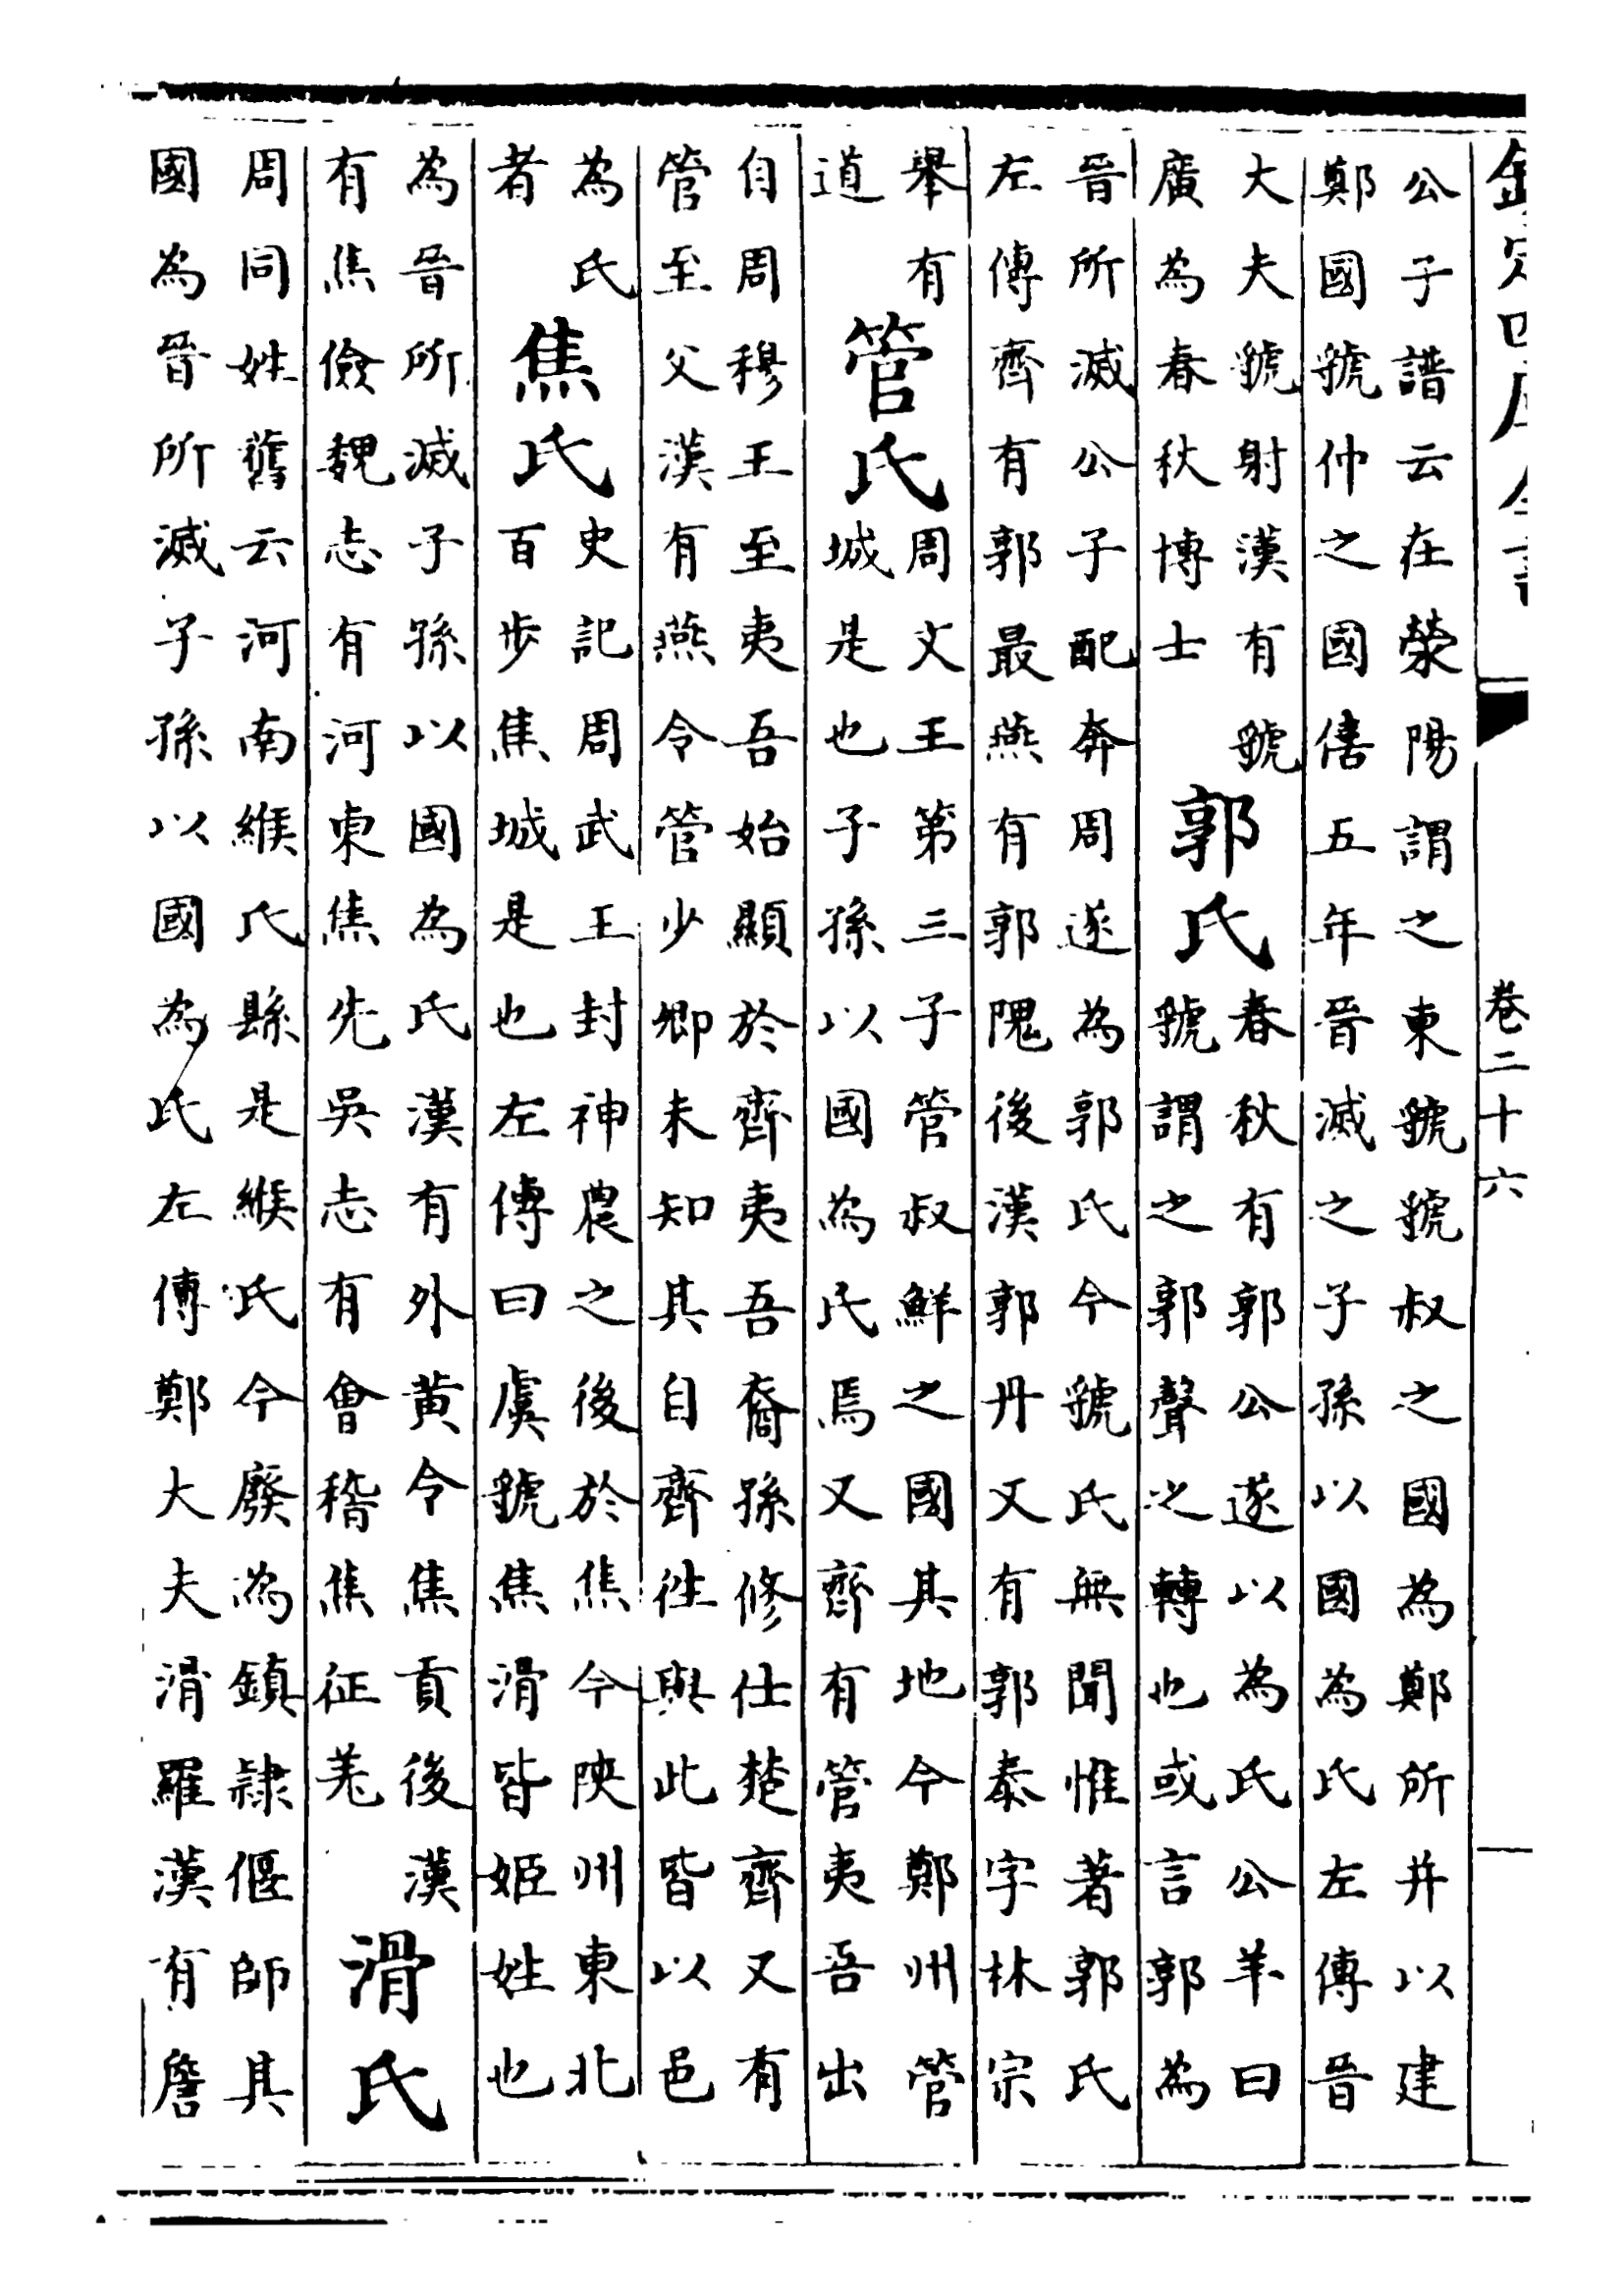 欽定四庫全書
卷二十六
公子譜云在滎陽謂之東虢虢叔之國為鄭所并以建
鄭國虢仲之國僖五年晉滅之子孫以國為氏左傳晉
大夫虢射漢有虢
廣為春秋博士
郭氏
春秋有郭公遂以為氏公羊曰
虢謂之郭聲之轉也或言郭為
晉所滅公子配奔周遂為郭氏今虢氏無聞惟著郭氏
左傳齊有郭最燕有郭隗後漢郭丹又有郭泰字林宗
舉有
道
管氏
周文王第三子管叔鮮之國其地今鄭州管
城是也子孫以國為氏焉又齊有管夷吾出
自周穆王至夷吾始顯於齊夷吾裔孫修仕楚齊又有
管至父漢有燕令管少卿未知其自齊徃與此皆以邑
為氏
者
焦氏
史記周武王封神農之後於焦今陜州東北
百步焦城是也左傳曰虞虢焦滑皆姬姓也
為晉所滅子孫以國為氏漢有外黄令焦貢後漢
有焦儉魏志有河東焦先吳志有會稽焦征羌
滑氏
周同姓舊云河南緱氏縣是緱氏今廢為鎮隸偃師其
國為晉所滅子孫以國為氏左傳鄭大夫滑羅漢有詹